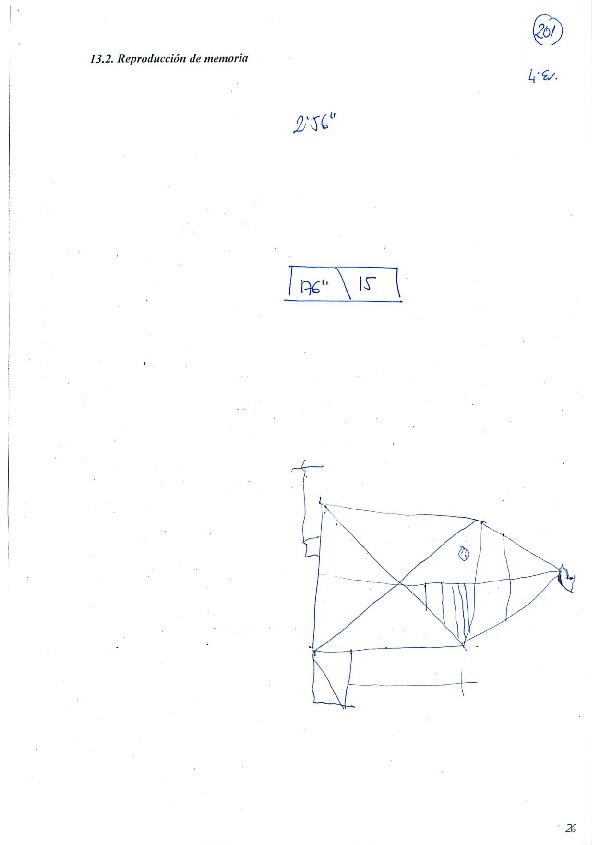 20!
13.2. Reproducción de memoria
4ª Ev.
2'56"
176" \ 15
26